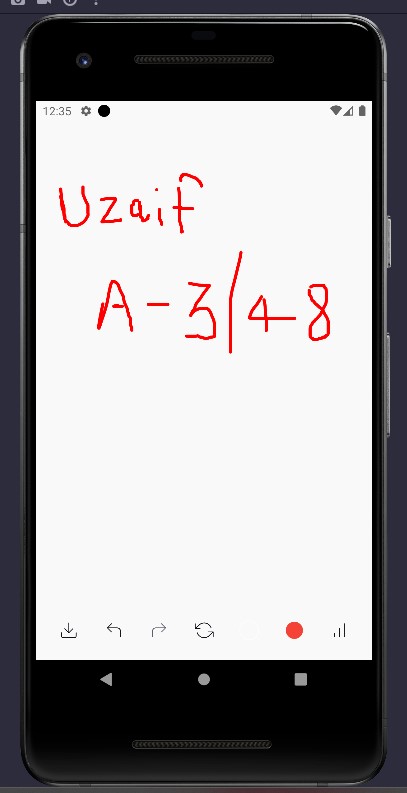 12:35
Uzaif
A-3/48